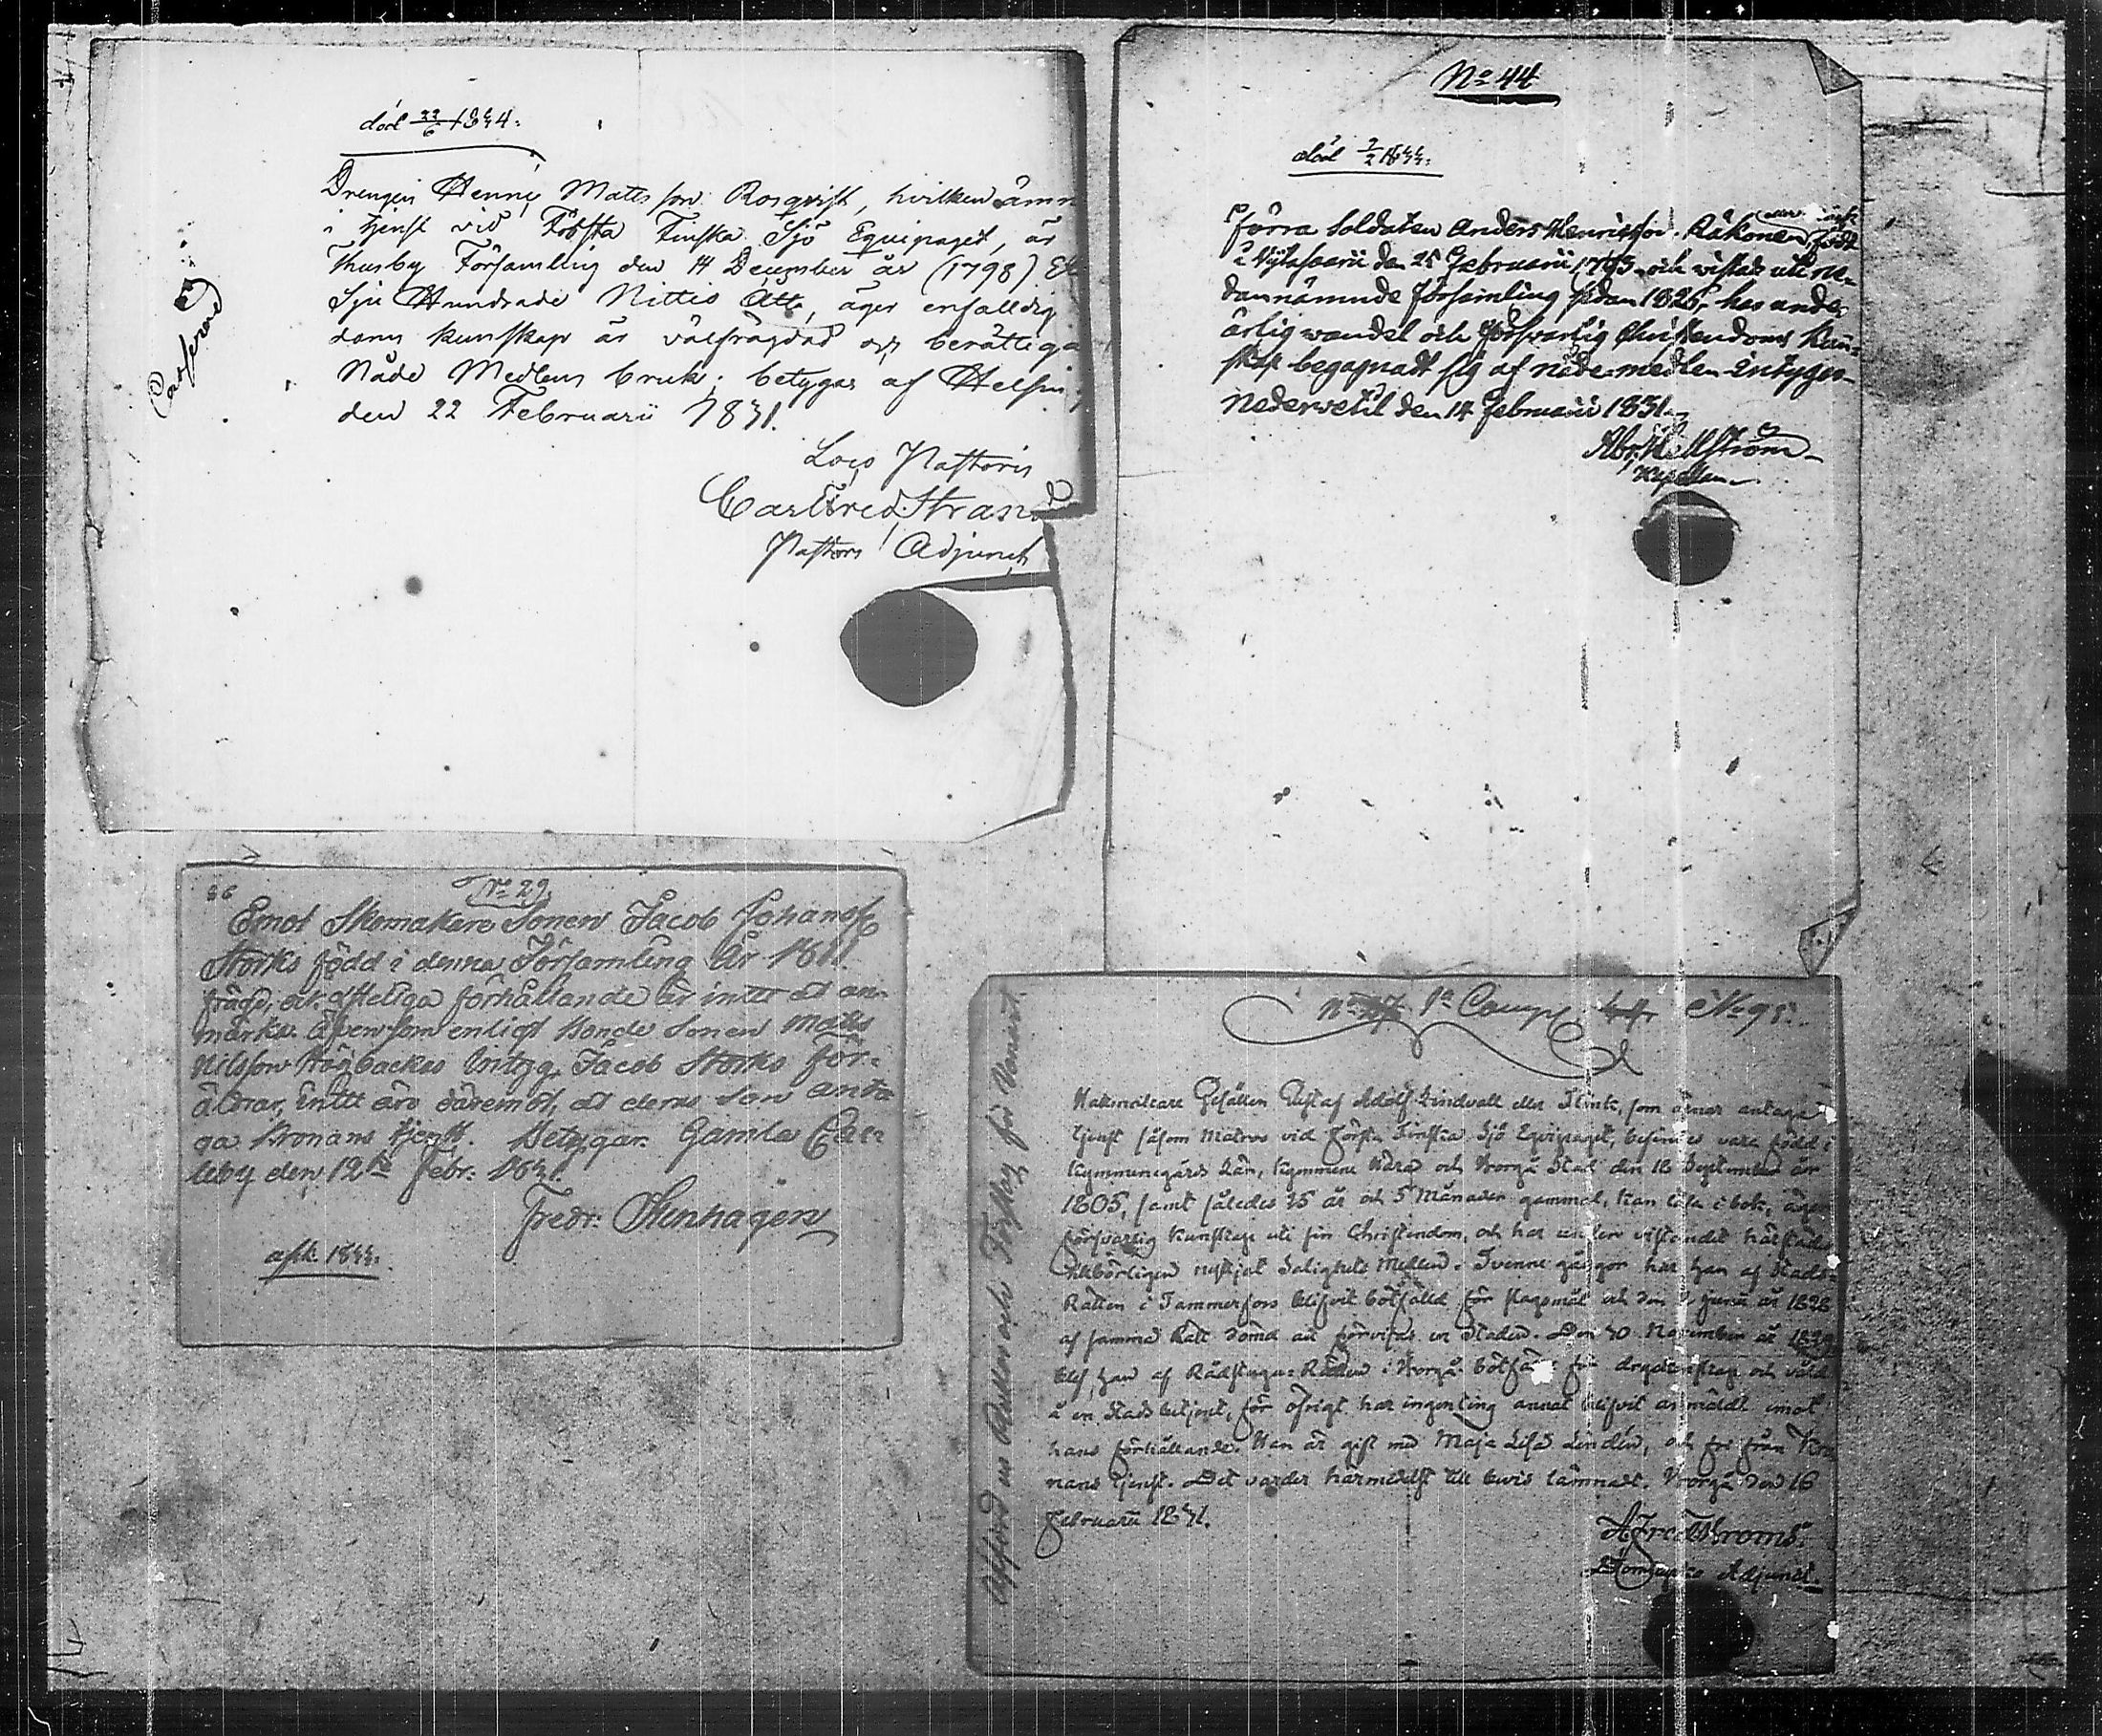 död 22/6 1844.
Drengen Henric Matts son Rosqvist, hvilken ämn
i tjenst vid Första Finska Sjö Equipaget, är
Thusby Församling den 14 December år (1798) Ett
Sju Hundrade Nittio Åtta, äger enfalldig
doms kunskap är välfrägdad och berättiga
Nåde Medlens bruk; betygas af Helsing
den 22 Februarii 1831.
Loco Pastoris
Carl Fred. Strand
Pastors Adjunct
Casserad
No 44
död 2/2 1844.
Förra Soldaten Anders Henricsson Räkonen, född
i Nykarbarii den 25 Februarii 1793 och vistats uti ne-
dannämnde församling sedan 1825, har under
ärlig wandel och försvarlig Christendoms kun-
skap begagnadt sig af nådemedlen intygar
Nederwetil den 14 Februarii 1831.
Abr. Hellström
Capellan
86
No 29
Emot Skomakare Sonen Jacob Johansson
Storks född i denna Församling År 1811.
frägd, och Christeliga förhållande är intet at an-
märka. Äfven som enligt Bonde Sonen Matts
Nilsson Högbackas Intyg, Jacob Storks För-
äldrar, intet äro däremot, at deras Son anta-
ga Kronans tjenst. Betygar. Gamla Car-
leby den 12te Febr. 1831.
Fredr. Stenhagen
afsk. 1844.
No 1a Comp. 44 No 95.
Hakmakare Gesällen Gustaf Adolf Lindvall eller Flink, som ärnar antaga
tjenst såsom Matros vid Första Finska Sjö Equipaget, befinnes vara född i
Kymmenegårds Län, Kymmene Härad och Borgå Stad den 18 September år
1805, samt således 25 år och 5 Månader gammal, kan läsa i bok, äger
försvarlig kunskap uti sin Christendom, och har under vistandet härstädes
tillbörligen nyttjat Salighets Medlen. Tvenne gångor har han af Stads-
Rätten i Tammerfors blifvit bötfälld för slagsmål och den 2 Junii år 1828
af samma Rätt dömd att förvisas ur Staden. Den 30 November år 1829
blef han af Rådstugu-Rätten i Borgå bötfälld för dryckenskap och våld
å en Stadsbetjent, för öfrigt har ingenting annat blifvit anmäldt emot
hans förhållande. Han är gift med Maja Lisa Lindén, och fri från Kro-
nans tjenst. Det varder härmedelst till bevis lämnadt. Borgå den 16
Februarii 1831.
A. Fred. Bröms.
Domkyrko Adjunct.